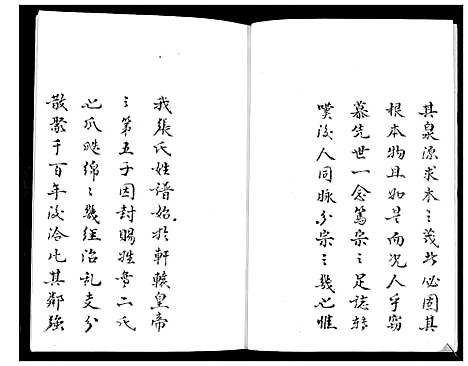 其泉源求木之茂者必固其
根本物且如是而况人乎窃
慕先世一念篤宗之足誌轉
嘆後人同脉分宗之幾也惟
我張氏姓譜始於軒轅皇帝
之第五子因封賜姓章二氏
也瓜瓞綿之幾經治亂支分
散聚千百年後洽比其鄰強